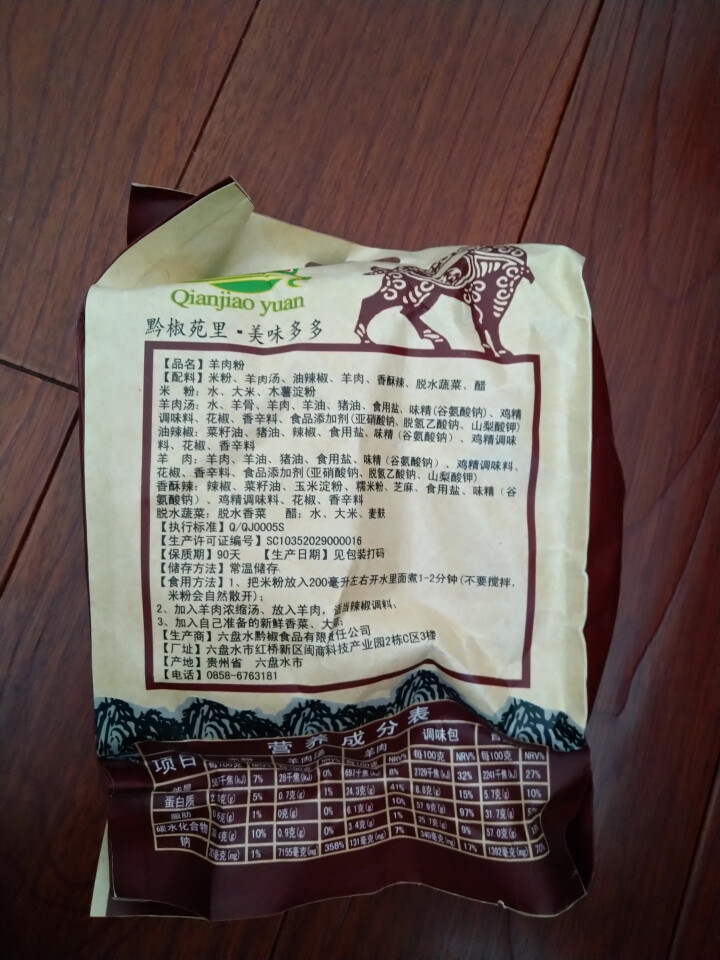 Qianjiao yuan
黔椒苑里·美味多多
【品名】羊肉粉
【配料】米粉、羊肉汤、油辣椒、羊肉、香酥辣、脱水蔬菜、醋
米 粉：水、大米、木薯淀粉
羊肉汤：水、羊骨、羊肉、羊油、猪油、食用盐、味精(谷氨酸钠)、鸡精
调味料、花椒、香辛料、食品添加剂(亚硝酸钠、脱氢乙酸钠、山梨酸钾)
油辣椒：菜籽油、猪油、辣椒、食用盐、味精（谷氨酸钠）、鸡精调味
料、花椒、香辛料
羊 肉：羊肉、羊油、猪油、食用盐、味精（谷氨酸钠）、鸡精调味料、
花椒、香辛料、食品添加剂(亚硝酸钠、脱氢乙酸钠、山梨酸钾)
香酥辣：辣椒、菜籽油、玉米淀粉、糯米粉、芝麻、食用盐、味精（谷
氨酸钠）、鸡精调味料、花椒、香辛料
脱水蔬菜：脱水香菜 醋：水、大米、麦麸
【执行标准】Q/QJ0005S
【生产许可证编号】SC10352029000016
【保质期】90天 【生产日期】见包装打码
【储存方法】常温储存
【食用方法】1、把米粉放入200毫升左右开水里面煮1-2分钟(不要搅拌，
米粉会自然散开)；
2、加入羊肉浓缩汤、放入羊肉，适当辣椒调料；
3、加入自己准备的新鲜香菜、大
【生产商】六盘水黔椒食品有限责任公司
【厂址】六盘水市红桥新区闽商科技产业园2栋C区3楼
【产地】贵州省 六盘水市
【电话】0858-6763181
营养成分表
项目 羊肉汤 羊肉 调味包
每100克 NRV% 每100克 NRV% 每100克 NRV% 每100克 NRV% 每100克 NRV%
7% 28千焦(kJ) 0% 697千焦(kJ) 8% 2729千焦(kJ) 32% 2241千焦(kJ) 27%
蛋白质 5% 0.7克(g) 1% 24.3克(g) 41% 8.8克(g) 15% 5.7克(g) 10%
脂肪 1% 0克(g) 0% 6.1克(g) 10% 57.9克(g) 97% 31.7克(g)
碳水化合物 10% 0.9克(g) 0% 3.4克(g) 1% 25.7克(g) 9% 57.0克(g)
钠 1% 7155毫克(mg) 358% 131毫克(mg) 7% 340毫克(mg) 17% 1392毫克(mg) 70%